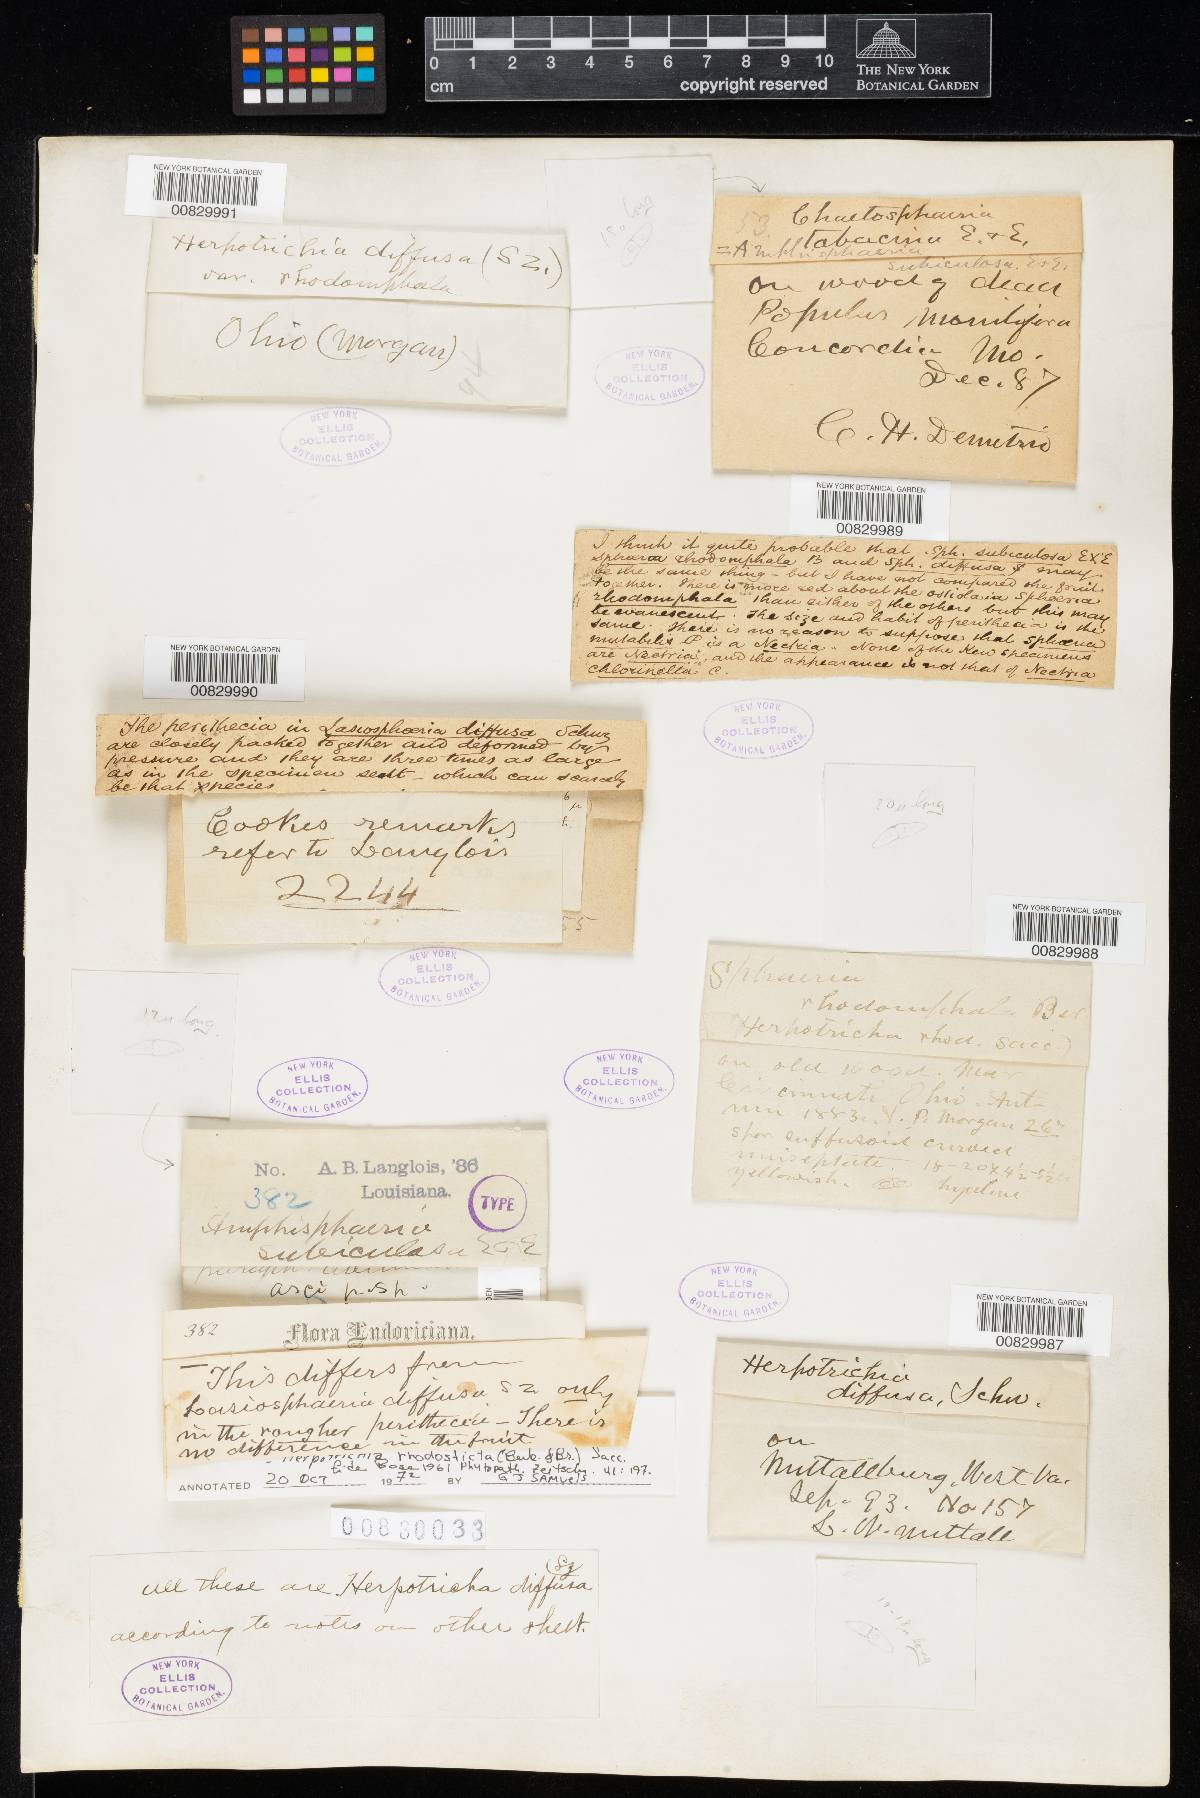 0 1 2 3 4 5 6 7 8 9 10
cm
copyright reserved
THE NEW YORK
BOTANICAL GARDEN
NEW YORK BOTANICAL GARDEN
00829991
Herpotrichia diffusa (Sz.)
var. rhodomphala
Ohio (Morgan)
NEW YORK
ELLIS
COLLECTION
BOTANICAL GARDEN.
long
NEW YORK
ELLIS
COLLECTION
BOTANICAL GARDEN.
53.
Chaetosphaeria
tabacina E. & E.
= Amphisphaeria
subiculosa. E&E.
on wood of dead
Populus monilifera
Concordia Mo.
Dec. 87
C. H. Demetrio
NEW YORK BOTANICAL GARDEN
00829989
I think it quite probable that Sph. subiculosa E&E
Sphaeria rhodomphala B and Sph. diffusa S may
be the same thing - but I have not compared the fruit
together. There is more red about the ostiola in Sphaeria
rhodomphala than either of the others but this may
be evanescent. The size and habit of perithecia is the
same. There is no reason to suppose that Sphaeria
mutabilis P is a Nectria. None of the Kew specimens
are Nectria, and the appearance is not that of Nectria
chlorinella C.
NEW YORK
ELLIS
COLLECTION
BOTANICAL GARDEN.
NEW YORK BOTANICAL GARDEN
00829990
The perithecia in Lasiosphaeria diffusa Schwz
are closely packed together and deformed by
pressure and they are three times as large
as in the specimen sent - which can scarcely
be that species
Cookes remarks
refer to Langlois
2244
55
NEW YORK
ELLIS
COLLECTION
BOTANICAL GARDEN.
20 µ long
NEW YORK BOTANICAL GARDEN
00829988
Sphaeria
rhodomphala Ber
(Herpotricha rhod. Sacc.)
on old wood. Near
Cincinnati, Ohio. Aut-
umn 1883. A. P. Morgan 267
spor. suffusoid curved
uniseptate. 18-20 x 4½-5½
yellowish. hyaline
17 µ long.
NEW YORK
ELLIS
COLLECTION
BOTANICAL GARDEN.
NEW YORK
ELLIS
COLLECTION
BOTANICAL GARDEN.
No. A. B. Langlois, '86
382 Louisiana.
TYPE
Amphisphaeria
subiculosa E&E
asci p. sp.
382 Flora Ludoviciana.
— This differs from
Lasiosphaeria diffusa Sz only
in the rougher perithecia — There is
no difference in the fruit
Herpotrichia rhodosticta (Berk. & Br.) Sacc.
fide Bose 1961 Phytopath. Zeitschr. 41: 197.
ANNOTATED 20 OCT 1972 BY G J SAMUELS
00830033
NEW YORK
ELLIS
COLLECTION
BOTANICAL GARDEN.
NEW YORK BOTANICAL GARDEN
00829987
Herpotrichia
diffusa, Schw.
on
Nuttallburg, West Va.
Sep. 93. No 157
L. W. Nuttall
all these are Herpotricha diffusa (Sz
according to notes on other sheet.
NEW YORK
ELLIS
COLLECTION
BOTANICAL GARDEN.